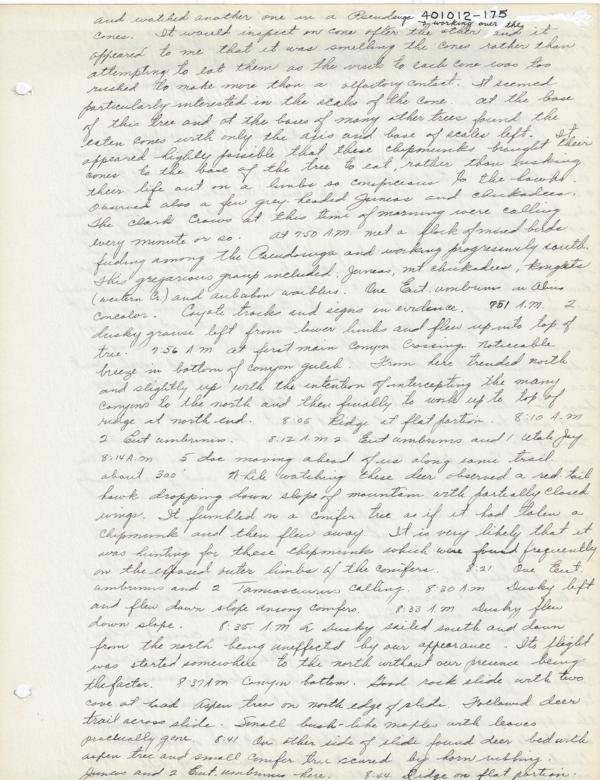 401012-175
and watched another one in a Pseudosuga by working over the
cones. It would inspect on cone after the other and it
appeared to me that it was smelling the cones rather than
attempting to eat them as the visit to each cone was too
rushed to make more than a olfactory contact. It seemed
particularly interested in the scales of the cone. At the base
of this tree and at the bases of many other trees found the
eaten cones with only the axis and base of scales left. It
appeared highly possible that these chipmunks brought their
cones to the base of the tree to eat, rather than risking
their life out on a limb so conspicious to the hawks.
Observed also a few grey headed Juncos and chickadees.
The Clark Crows at this time of morning were calling
every minute or so. At 750 A.M. met a flock of mixed birds
feeding among the Pseudosuga and working progressively south.
This gregarious group included; Juncos, mt chickadees, Kinglets
(western G.) and audubon warblers. One Eut. umbrinus in Abies
concolor. Coyote tracks and signs in evidence. 751 A.M. 2
dusky grouse left from lower limbs and flew up into top of
tree. 7:56 A M at first main canyon crossing. noticeable
breeze in bottom of canyon gulch. From here trended north
and slightly up with the intention of intercepting the many
canyons to the north and then finally to work up to top of
ridge at north end. 8:05 Ridge at flat portion. 8:10 A.M
2 Eut umbrinus. 8:12 A.M 2 Eut umbrinus and 1 Utah Jay
8:14 A.M 5 doe moving ahead of us along same trail
about 300' While watching these deer observed a red-tail
hawk dropping down slope of mountain with partially closed
wings. It fumbled in a conifer tree as if it had taken a
chipmunk and then flew away. It is very likely that it
was hunting for these chipmunks which were found frequently
on the exposed outer limbs of the conifers. 8:21 One Eut.
umbrinus and 2 Tamiasciurus calling. 8:30 A M Dusky left
and flew down slope among conifers. 8:33 A M Dusky flew
down slope. 8:35 A.M 2 Dusky sailed south and down
from the north being uneffectd by our appearance. Its flight
was started somewhere to the north without our presence being
the factor. 8:37 AM Canyon bottom. Good rock slide with two
cove at Aspen trees on north edge of slide. Followed deer
trail across slide. Small bush-like maples with leaves
practually gone. 8:41 On other side of slide found deer bed with
aspen tree and small conifer tree scared by horn rubbing.
Juncos and 2 Eut. umbrinus here. 8:44 Ridge on flat portion.